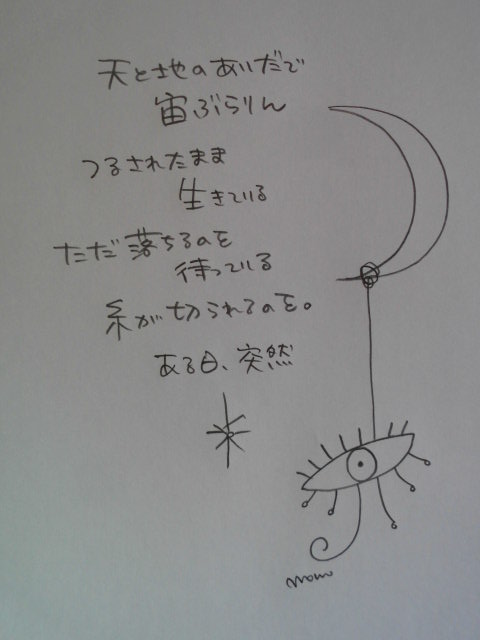 天と地のあいだで
宙ぶらりん
つるされたまま
生きている
ただ落ちるのを
待っている
糸が切られるのを。
ある日、突然
momo